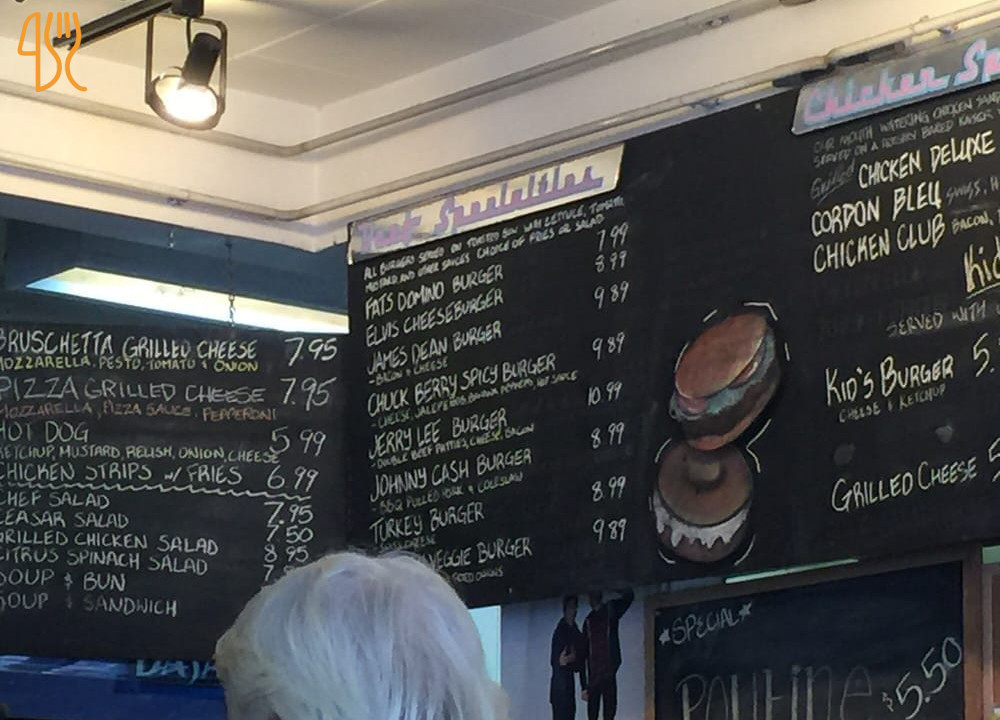 BRUSCHETTA GRILLED CHEESE 7.95
MOZZARELLA, PESTO, TOMATO & ONION
PIZZA GRILLED CHEESE 7.95
MOZZARELLA, PIZZA SAUCE, PEPPERONI
HOT DOG 5.99
KETCHUP, MUSTARD, RELISH, ONION, CHEESE
CHICKEN STRIPS w/ FRIES 6.99
CHEF SALAD 7.95
CEASAR SALAD 7.50
GRILLED CHICKEN SALAD 8.95
CITRUS SPINACH SALAD
SOUP & BUN
SOUP & SANDWICH
Specialties
ALL BURGERS SERVED ON TOASTED BUN WITH LETTUCE, TOMATO,
MUSTARD AND OTHER SAUCES CHOICE OF FRIES OR SALAD
FATS DOMINO BURGER 7.99
ELVIS CHEESEBURGER 8.99
JAMES DEAN BURGER 9.89
- BACON & CHEESE
CHUCK BERRY SPICY BURGER 9.89
- CHEESE, JALEPENOS, BANANA PEPPERS, HOT SAUCE
JERRY LEE BURGER 10.99
- DOUBLE BEEF PATTIES, CHEESE, BACON
JOHNNY CASH BURGER 8.99
- BBQ PULLED PORK & COLESLAW
TURKEY BURGER 8.99
VEGGIE BURGER 9.89
Chicken Sp
OUR MOUTH WATERING CHICKEN
SERVED ON A BAKED KAISER
Grilled CHICKEN DELUXE
CORDON BLEU SWISS, H
CHICKEN CLUB BACON,
Kid
SERVED WITH
KID'S BURGER 5.
CHEESE & KETCHUP
GRILLED CHEESE 5
*SPECIAL*
POUTINE $5.50